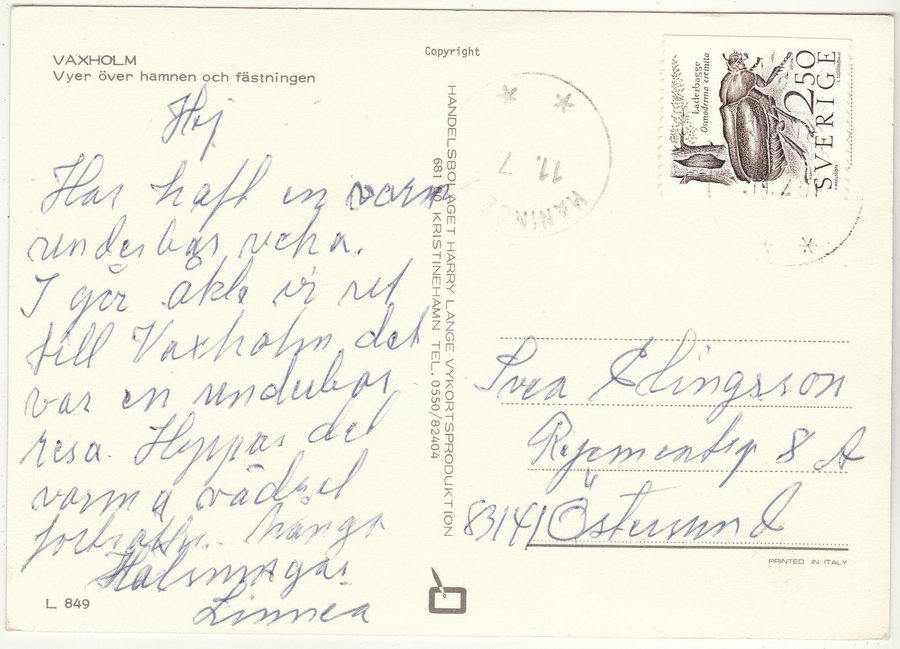 VAXHOLM
Vyer över hamnen och fästningen
Hej
Har haft en varm
underbar vecka.
I går åkte vi ret
till Vaxholm det
var en underbar
resa. Hoppas det
varma vädret
fortsätter. Många
Hälsningar
Linnea
L 849
Copyright
HANDELSBOLAGET HARRY LANGE VYKORTSPRODUKTION
KRISTINEHAMN TEL. 0550/82404
11. 7
HANINGE
Läderbagge
Osmoderma eremita
2.50
SVERIGE
Svea Elingsson
Regementsg 8 A
83141 Östersund
PRINTED IN ITALY